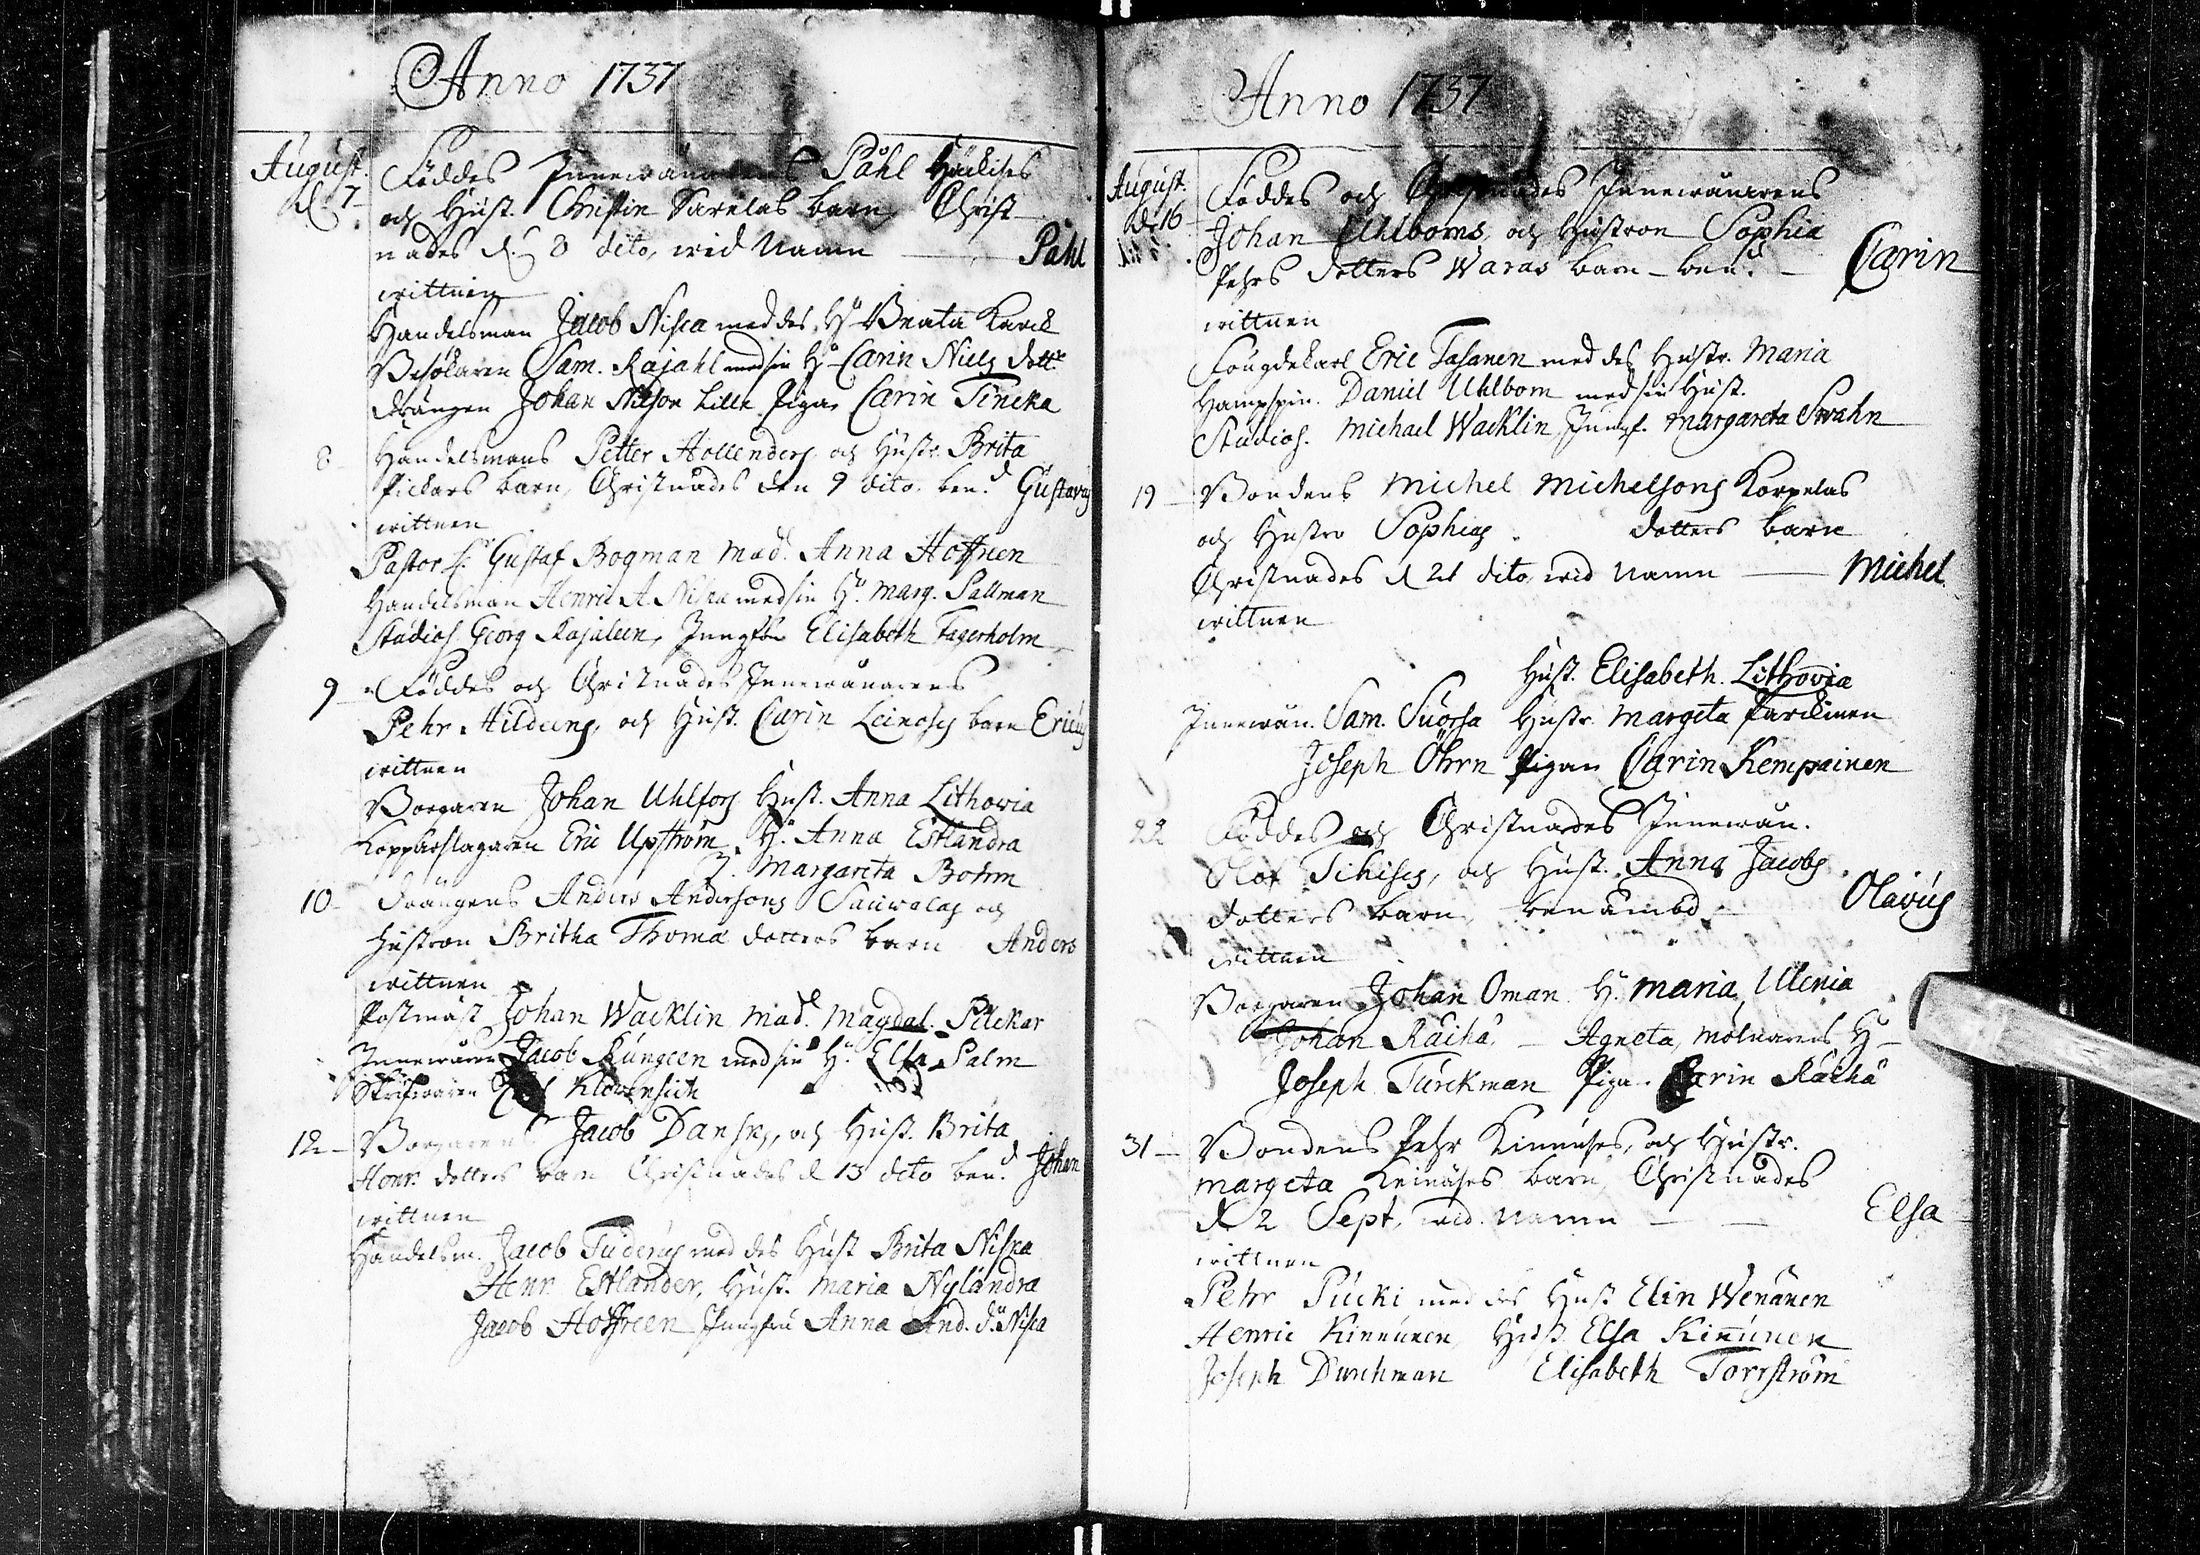 Anno 1737
August. Föddes Innewånarens Påhl Häckises
d. 7 och Hust. Christin Karelas barn, Christ-
nades d. 8 dito, wid Namn Påhl
wittnen
Handelsman Jacob Nisca med des H. Beata Karck
Besökaren Sam. Kajahl med sin H. Carin Niels dott.
Drängen Johan Nilson Lille Pigan Carin Tincka
8 Handelsmans Petter Hollenders och Hustr. Brita
Pickars barn, Christnades den 9 dito. ben.d Gustavus
wittnen
Pastor H. Gustaf Bogman Mad. Anna Hoffreen
Handelsman Henric A. Nisca med sin H. Marg. Sallman
Studios. Georg Kajaleen, Jungfru Elisabeth Fagerholm
9 Föddes och Christnades Innewånarens
Pehr Hildeens, och Hust. Carin Leinoses barn Ericus
wittnen
Borgaren Johan Uhlfors Hust. Anna Lithovia
Kopparslagaren Eric Upström, H. Anna Estlandra
J. Margareta Bohm
10 Drängens Anders Andersons Sauwolas och
Hustron Britha Thomæ dotters barn Anders
wittnen
Postmäst Johan Wacklin Mad. Magdal. Pickar
Innewånar Jacob Kungeen med sin H. Elsa Palm
Skrifwaren
12 Borgarens Jacob Dansks, och Hust. Brita
Henr. dotters barn Christnades d 13 dito ben.d Johan
wittnen
Handelsm. Jacob Tuderus med des Hust Brita Nisca
Henr. Estlander, Hust. Maria Nylandra
Jacob Hoffreen Jungfru Anna And. d. Nisca
Anno 1737
August. Föddes och Christnades Innewånarens
d. 16 Johan Uhlboms, och Hustron Sophia
Pehrs dotters Waras barn ben.d Carin
wittnen
Fougdekarl Eric Tasanen med des Hustr. Maria
Hampspin. Daniel Uhlbom med sin Hust.
Studios. Michael Wacklin Jungf. Margareta Swahn
19 Bondens Michel Michelsons Korpelas
och Hustro Sophias dotters barn
Christnades d 21 dito, wid Namn Michel
wittnen
Hust. Elisabeth. Lithovia
Innewån. Sam. Suorsa Hustr Margeta Parckinen
Joseph Öhrn Pigan Carin Kempainen
22 Föddes och Christnades Innewån.
Olof Tihises, och Hust. Anna Jacobs
dotters barn, benämbd Olavus
wittnen
Borgaren Johan Oman H. Maria Ulenia
Johan Räihä Agneta, Molnarens H
Joseph Turckman Piga. Carin Räihä
31 Bondens Pehr Kinnuses, och Hustr.
Margeta Keinäses barn, Christnades
d 2 Sept, wid Namn Elsa
wittnen
Pehr Pucki med des Hust Elin Wenänen
Henric Kinnunen, Hust. Elsa Kinnunen
Joseph Durchman Elisabeth Torrström